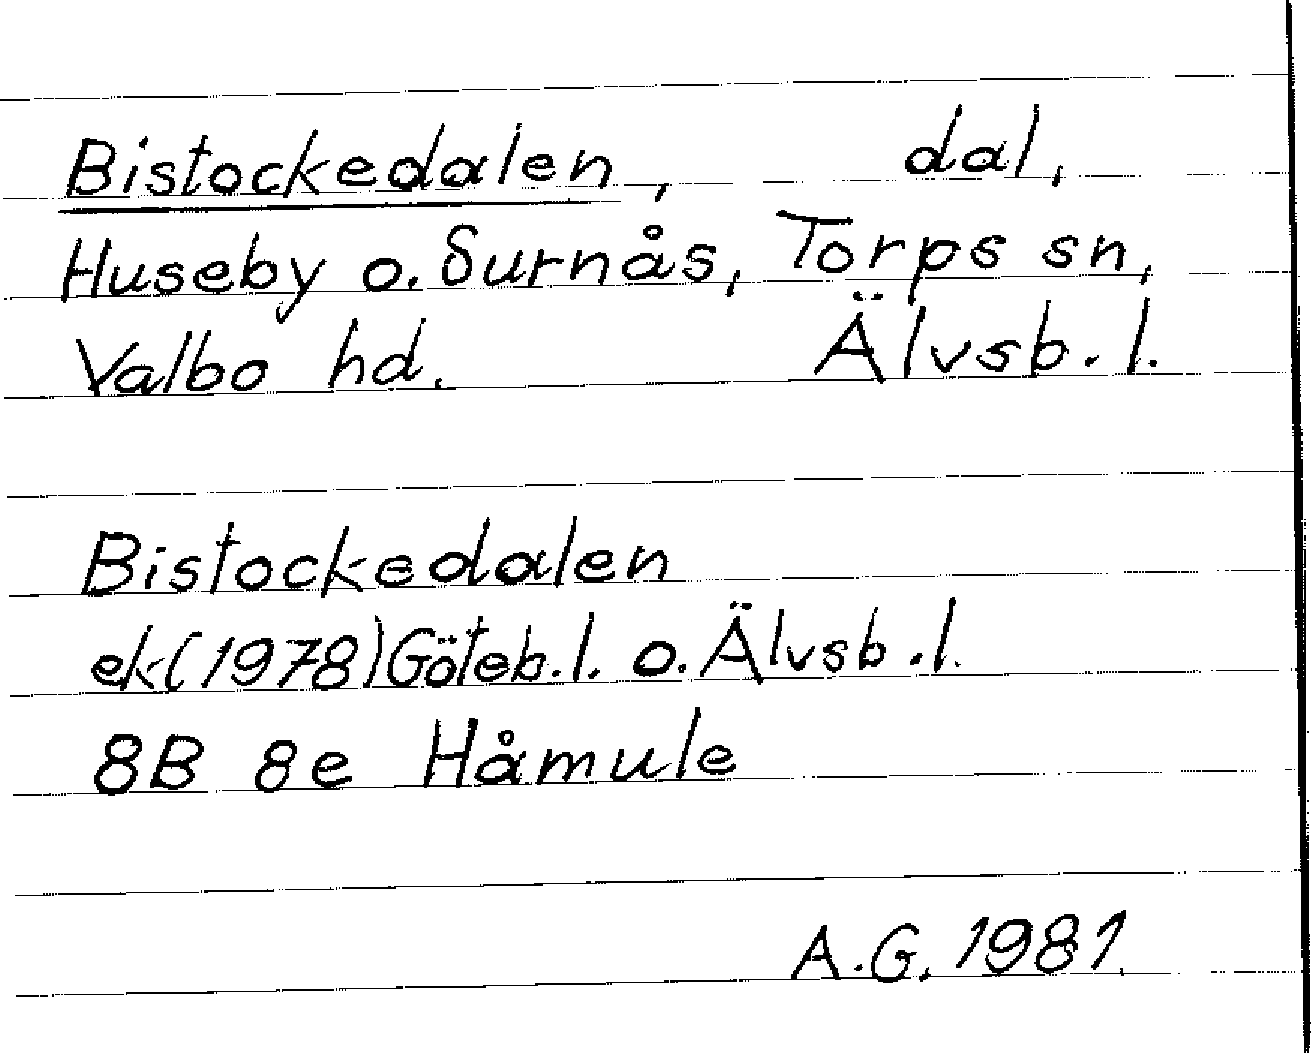 Bistockedalen, dal,
Huseby o. Surnås, Torps sn,
Valbo hd. Älvsb. l.
Bistockedalen
ek(1978)Göteb. l. o. Älvsb. l.
8B 8e Håmule
A.G. 1981.